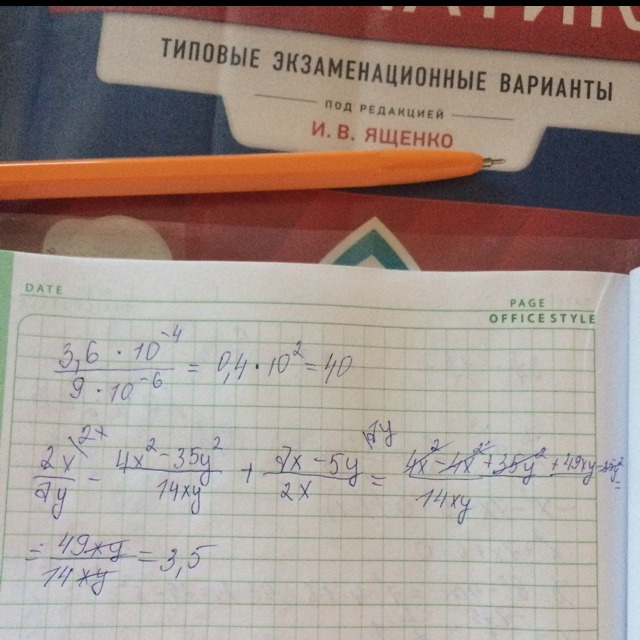 ТИПОВЫЕ ЭКЗАМЕНАЦИОННЫЕ ВАРИАНТЫ
ПОД РЕДАКЦИЕЙ
И. В. ЯЩЕНКО
DATE
PAGE
OFFICE STYLE
3,6 · 10⁻⁴ / 9 · 10⁻⁶ = 0,4 · 10² = 40
2x\2x / 7y − 4x² − 35y² / 14xy + 7x − 5y\7y / 2x = 4x² − 4x² + 35y² + 49xy − 35y² / 14xy =
= 49xy / 14xy = 3,5